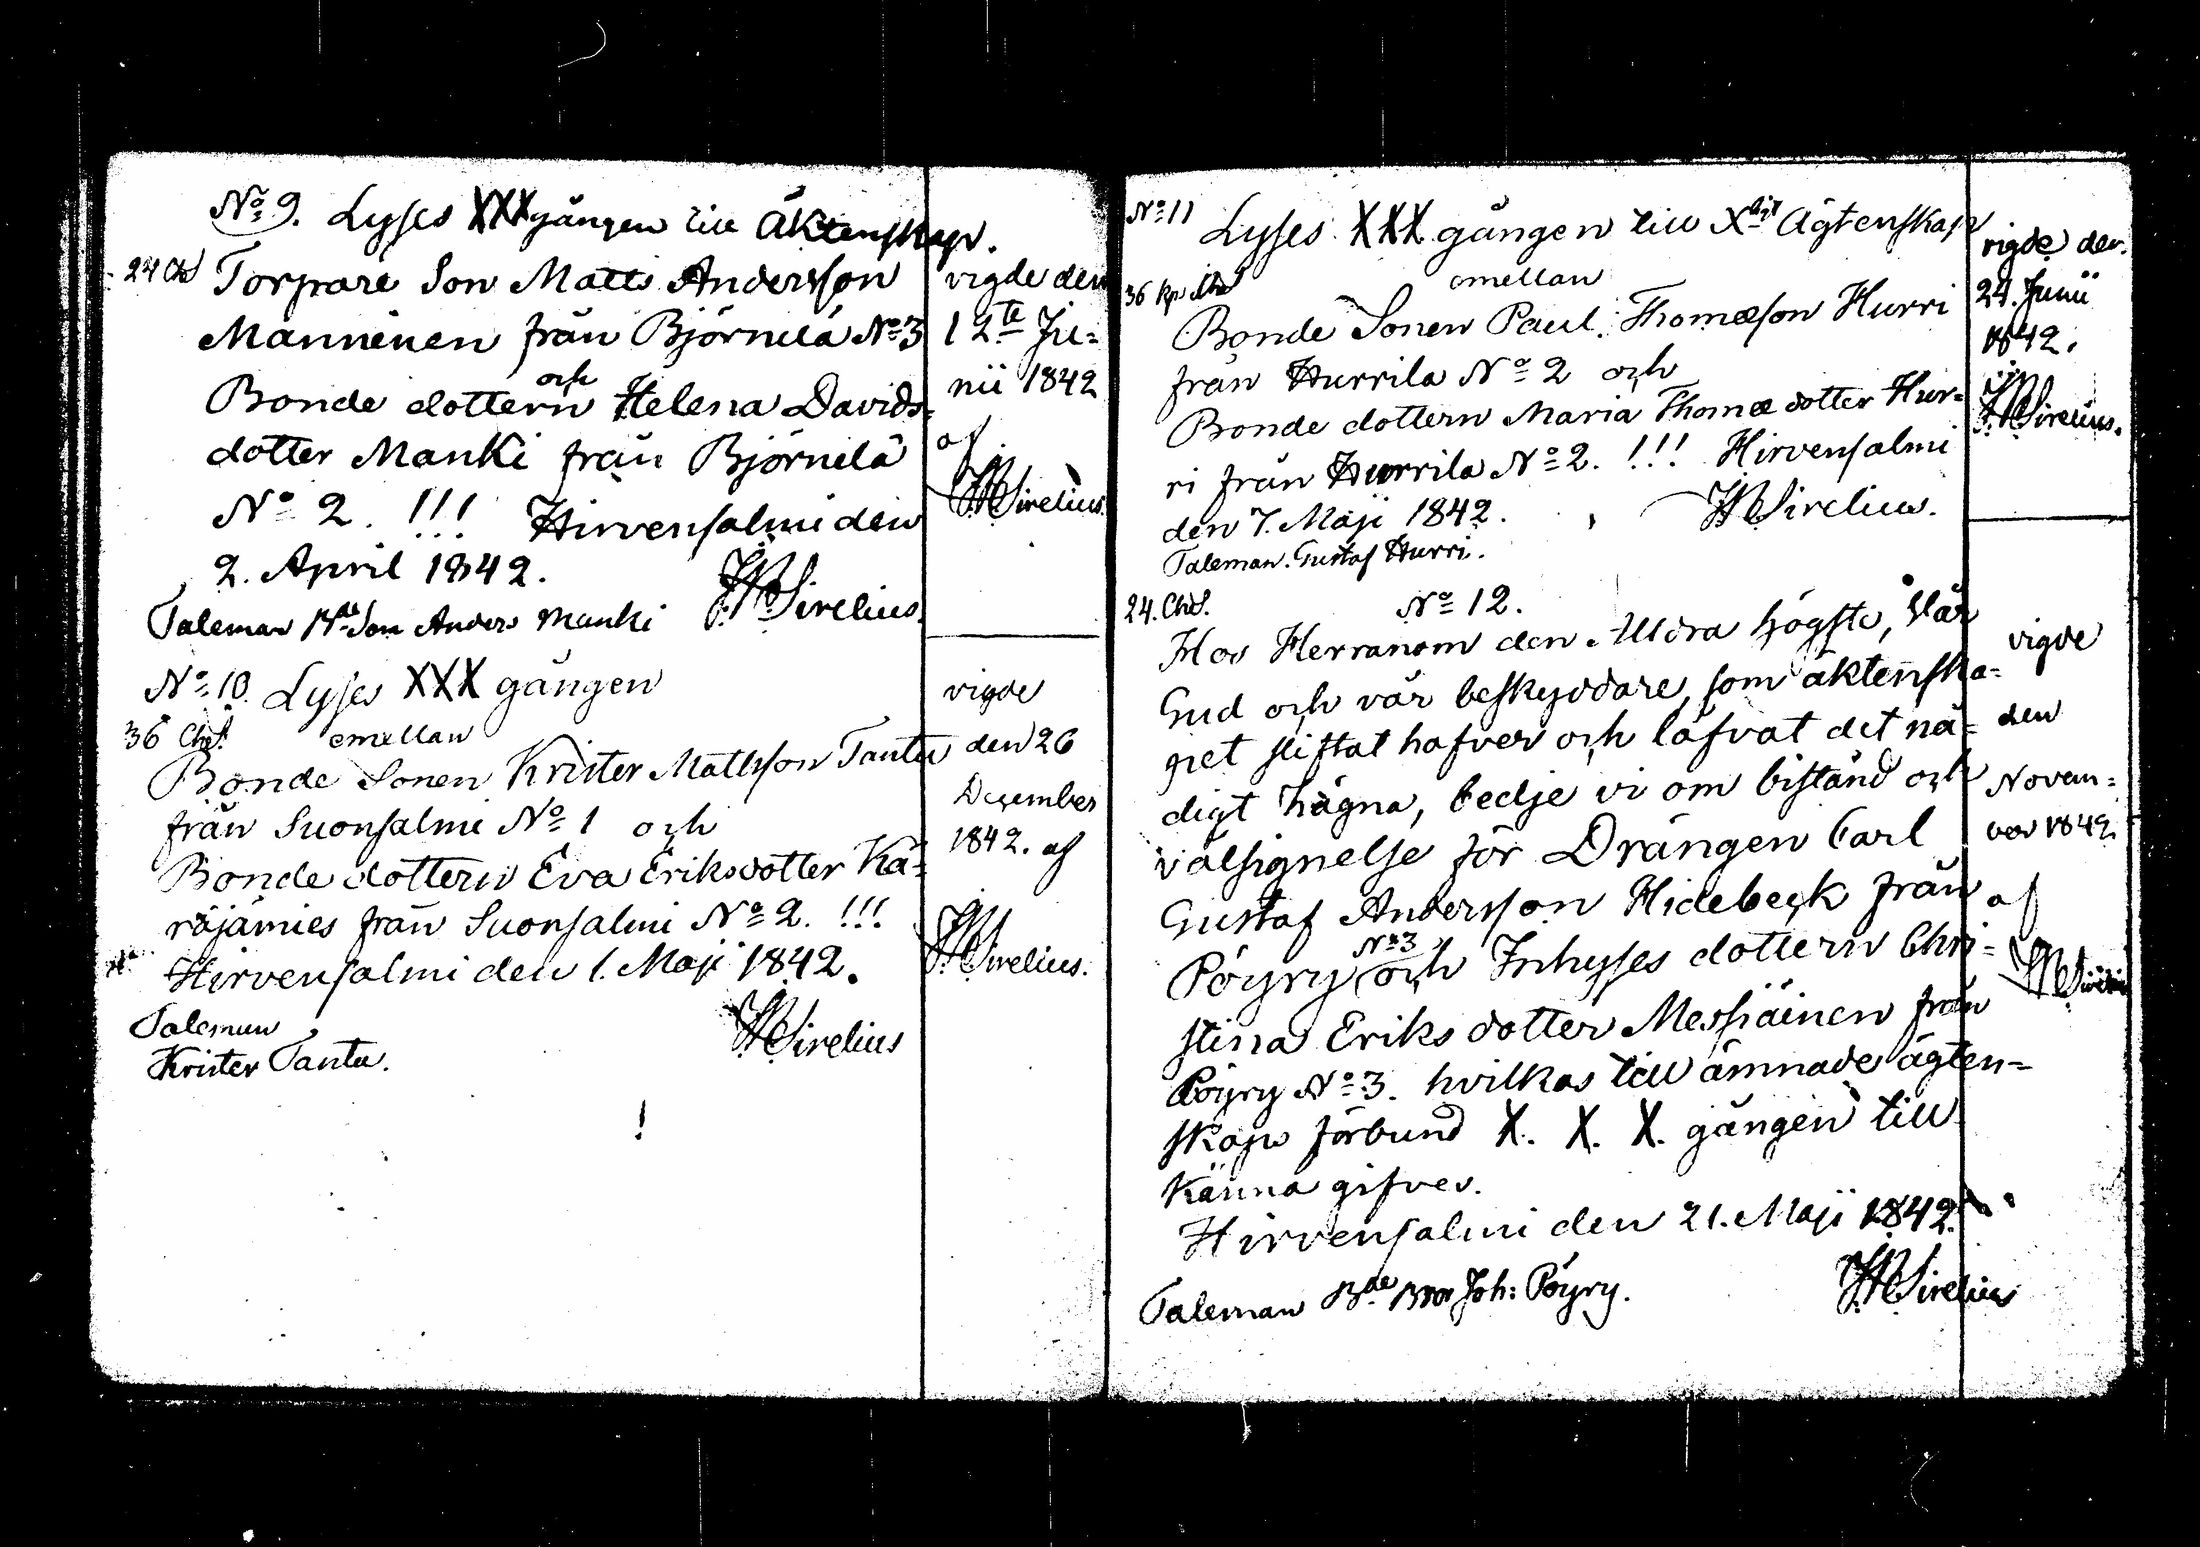 No 9. Lyses XXX gången till Äktenskap.
24 Ch
Torpare Son Matts Andersson
Manninen från Björnilä No 3
och
Bonde dottern Helena Davids=
dotter Manki från Björnilä
No 2. !!! Hirvensalmi den
2. April 1842.
JWSirelius.
Taleman Bde Son Anders Manki
vigde den
12te Ju=
nii 1842
af
JWSirelius.
No 10. Lyses XXX gången
36 Ch.
emellan
Bonde Sonen Krister Mattsson Tantu
från Suonsalmi No 1 och
Bonde dottern Eva Eriksdotter Kä=
räjämies från Suonsalmi No 2. !!!
Hirvensalmi den 1. Maji 1842.
JWSirelius
Taleman
Krister Tantu.
vigde
den 26
December
1842. af
JWSirelius.
No 11
Lyses XXX gången till Xligt Ägtenskap
36 kp
emellan
Bonde Sonen Paul Thomæson Hurri
från Hurrila No 2 och
Bonde dottern Maria Thomædotter Hur=
ri från Hurrila No 2. !!! Hirvensalmi
den 7. Maji 1842. JWSirelius.
Taleman. Gustaf Hurri.
vigde den
24. Junii
1842.
JWSirelius.
24. Ch.
No 12.
Hos Herranom den Alldra högste, Vår
Gud och vår beskyddare, som äktenska=
pet stiftat hafver och låfvat det nå=
digt hägna, bedje vi om bistånd och
välsignelse för Drängen Carl
Gustaf Andersson Hidebeck från
No 3
Pöyry och Inhyses dottern Chri=
stina Eriks dotter Messiäinen från
Pöyry No 3. hvilkas till ämnade ägten=
skaps förbund X. X. X. gången till
känna gifves.
Hirvensalmi den 21. Maji 1842.
JWSirelius
Taleman Bde Bror Joh: Pöyry.
vigde
den
Novem=
ber 1842
af
JWSirelius